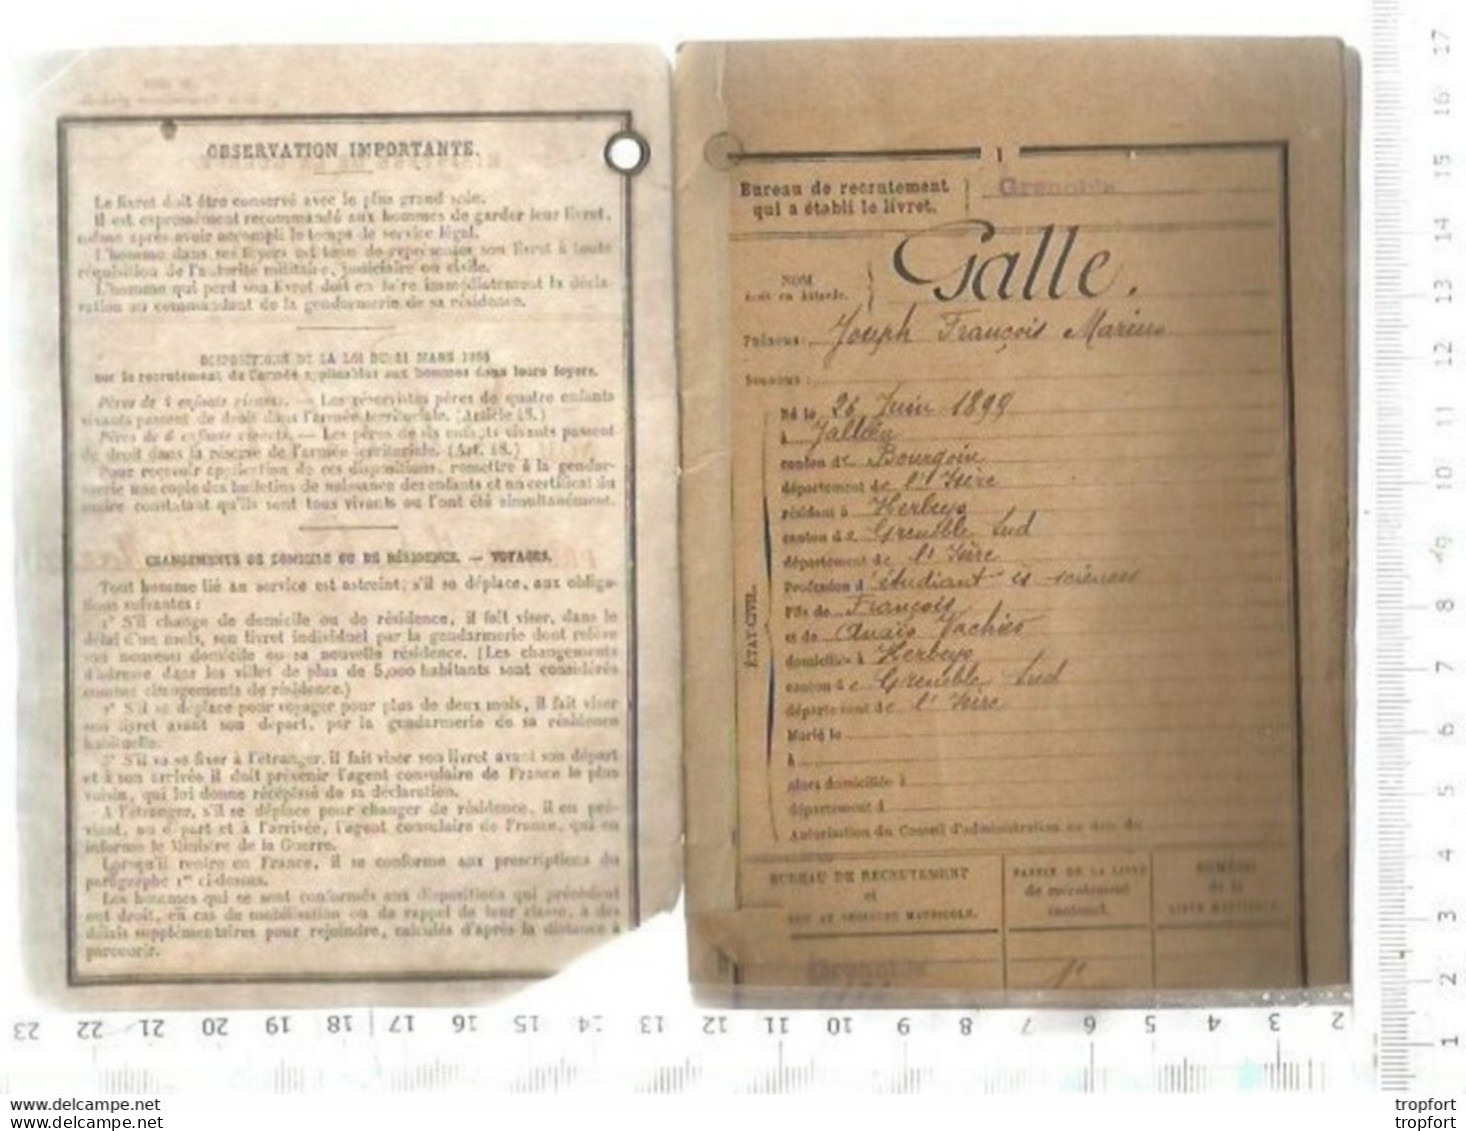 OBSERVATION IMPORTANTE.
Le livret doit être conservé avec le plus grand soin.
Il est expressément recommandé aux hommes de garder leur livret,
même après avoir accompli le temps de service légal.
L'homme dans ses foyers est tenu de représenter son livret à toute
réquisition de l'autorité militaire, judiciaire ou civile.
L'homme qui perd son livret doit en faire immédiatement la décla-
ration au commandant de la gendarmerie de sa résidence.
DISPOSITIONS DE LA LOI DU 21 MARS 1905
sur le recrutement de l'armée applicables aux hommes dans leurs foyers.
Pères de 4 enfants vivants. — Les réservistes pères de quatre enfants
vivants passent de droit dans l'armée territoriale. (Article 48.)
Pères de 6 enfants vivants. — Les pères de six enfants vivants passent
de droit dans la réserve de l'armée territoriale. (Art. 48.)
Pour recevoir application de ces dispositions, remettre à la gendar-
merie une copie des bulletins de naissance des enfants et un certificat du
maire constatant qu'ils sont tous vivants ou l'ont été simultanément.
CHANGEMENTS DE DOMICILE OU DE RÉSIDENCE. — VOYAGES.
Tout homme lié au service est astreint, s'il se déplace, aux obliga-
tions suivantes :
1° S'il change de domicile ou de résidence, il fait viser, dans le
délai d'un mois, son livret individuel par la gendarmerie dont relève
son nouveau domicile ou sa nouvelle résidence. (Les changements
d'adresse dans les villes de plus de 5,000 habitants sont considérés
comme changements de résidence.)
2° S'il se déplace pour voyager pour plus de deux mois, il fait viser
son livret avant son départ, par la gendarmerie de sa résidence
habituelle.
3° S'il va se fixer à l'étranger, il fait viser son livret avant son départ
et à son arrivée il doit prévenir l'agent consulaire de France le plus
voisin, qui lui donne récépissé de sa déclaration.
A l'étranger, s'il se déplace pour changer de résidence, il en pré-
vient, au départ et à l'arrivée, l'agent consulaire de France, qui en
informe le Ministre de la Guerre.
Lorsqu'il rentre en France, il se conforme aux prescriptions du
paragraphe 1er ci-dessus.
Les hommes qui se sont conformés aux dispositions qui précèdent
ont droit, en cas de mobilisation ou de rappel de leur classe, à des
délais supplémentaires pour rejoindre, calculés d'après la distance à
parcourir.
1
Bureau de recrutement
qui a établi le livret. Grenoble
NOM
écrit en bâtarde. Galle.
Prénoms : Joseph François Marius
Surnoms :
ÉTAT-CIVIL.
Né le 26 Juin 1899
à Jallieu
canton de Bourgoin
département de l'Isère
résidant à Herbeys
canton de Grenoble Sud
département de l'Isère
Profession d étudiant ès-sciences
Fils de François
et de Anaïs
domiciliés à Herbeys
canton de Grenoble Sud
département de l'Isère
Marié le
à
alors domiciliée à
département d
Autorisation du Conseil d'administration en date du
BUREAU DE RECRUTEMENT
et
NUMÉRO MATRICULE.
PARTIE DE LA LISTE
de recrutement
cantonal.
NUMÉRO
de la
LISTE MATRICULE.
Grenoble
23 22 21 20 19 18 17 16 15 14 13 12 11 10 9 8 7 6 5 4 3 2
17
16
15
14
13
12
11
10
9
8
7
6
5
4
3
2
1
delcampe.net
www.delcampe.net
tropfort
tropfort